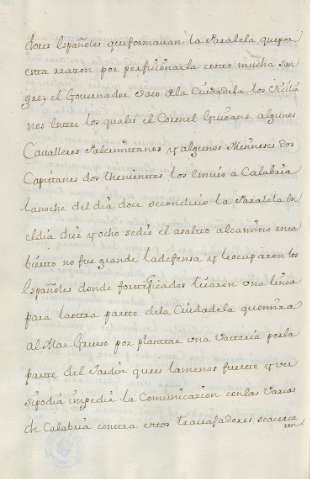 dores Españoles que formauan la Paralela que por
esta razon por perfisionarla corrio mucha san
gre; el Gouernador saco dela Ciudadela los Mesia
nes entre los quales el Coronel algunos
Caualleros y algunos Menores dos
Capitanes dos Thenientes los embio a Calabria
lanoche del dia doze se condusio la Paralela en
el dia diez y ocho sedio el asalto alcamino encu
bierto no fue grande ladefensa y le ocuparon los
Españoles donde fortificados tiraron una linea
para laotra parte dela Ciudadela que mira
al Mar Grueso por plantar una Vatteria por la
parte del Jardin que es la menos fuerte y ver
sipodia impedir la Comunicacion con las Varcas
de Calabria contra estos trauajadores se acerca
ron